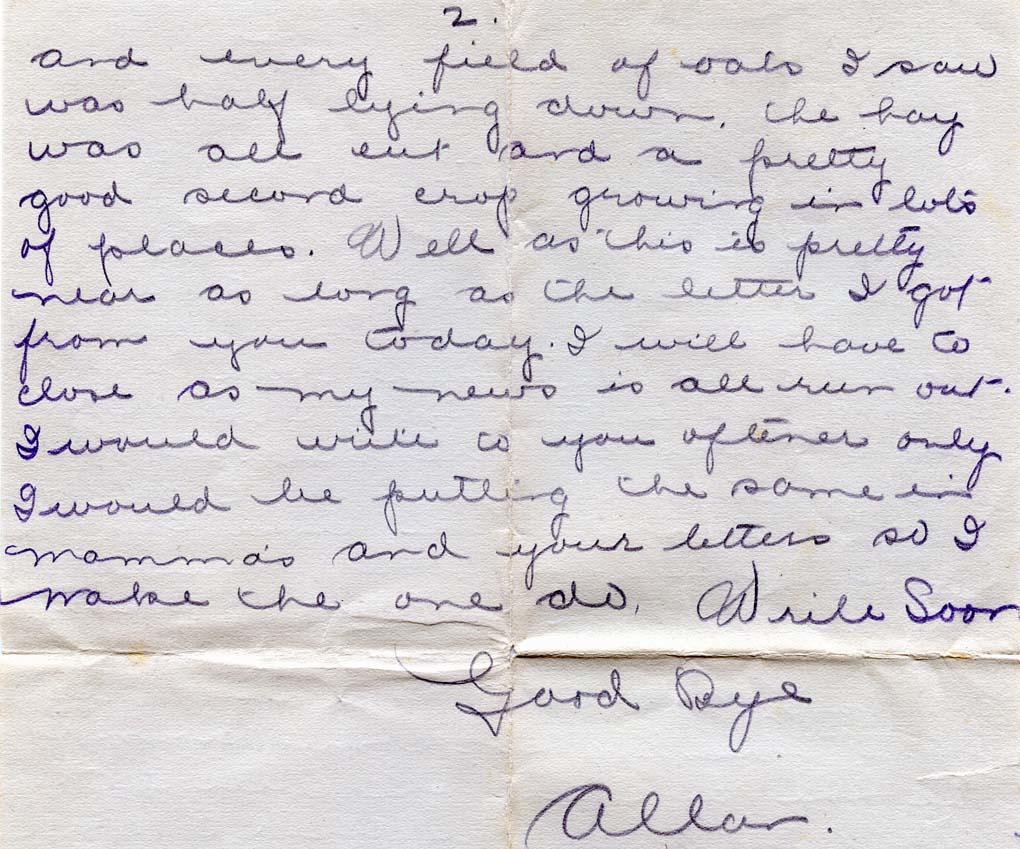 2.
and every field of oats I saw
was half lying down, the hay
was all cut and a pretty
good second crop growing in lots
of places. Well as this is pretty
near as long as the letter I got
from you today. I will have to
close as my news is all run out.
I would write to you oftener only
I would be putting the same in
mamma's and your letters so I
make the one do. Write Soon
Good Bye
Allan.